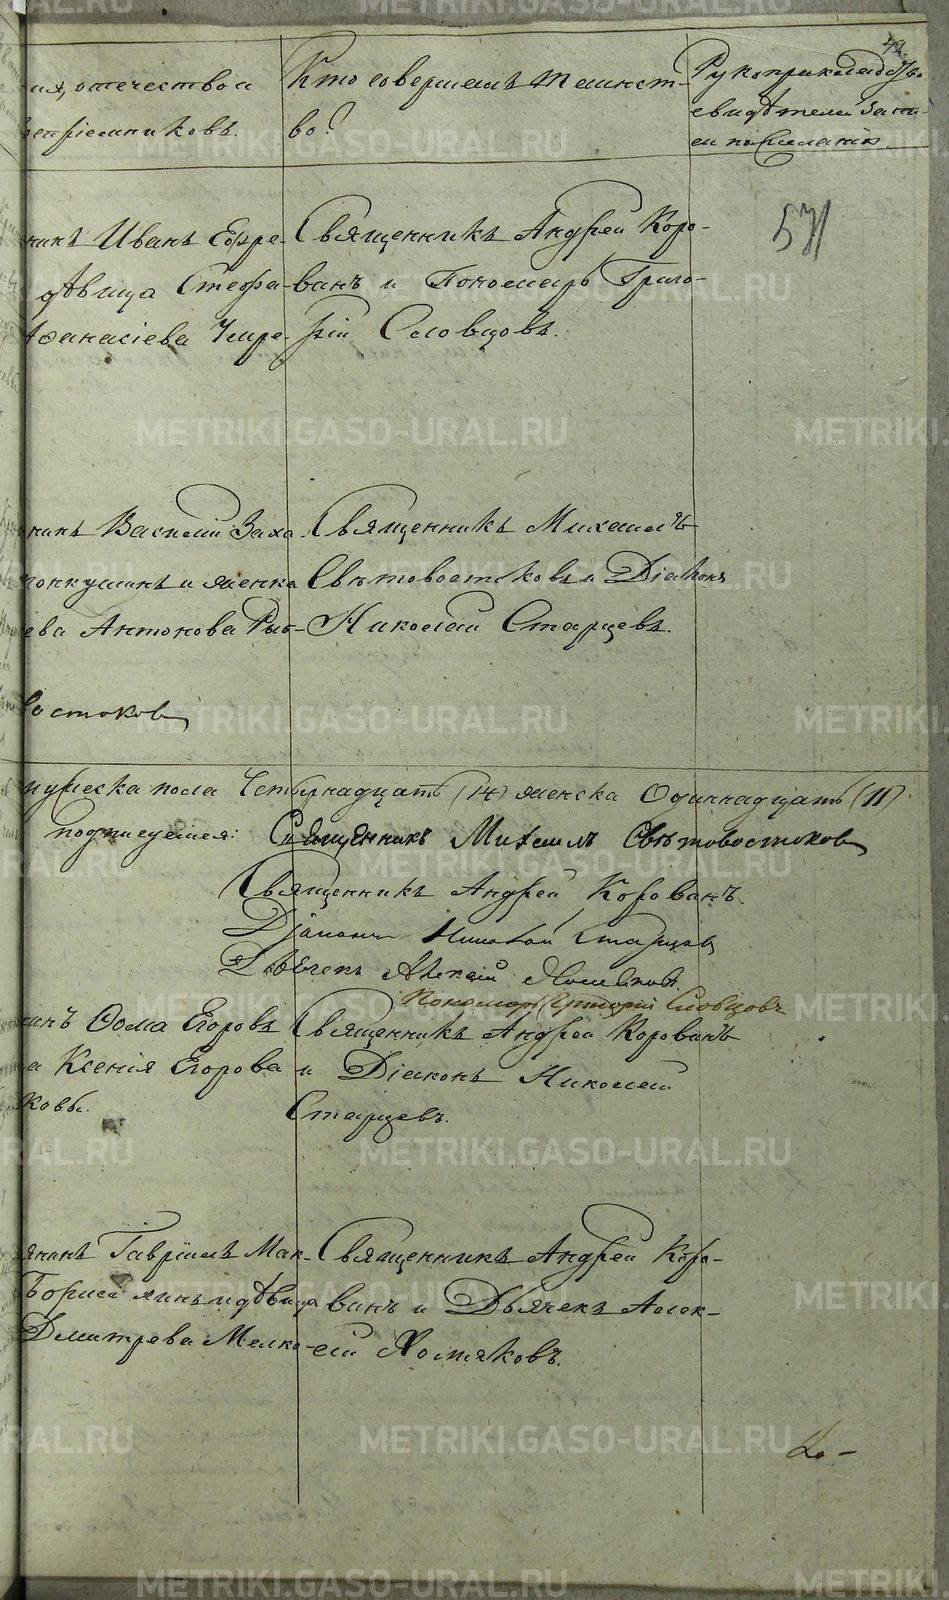 49.
отечество и
воспріемниковъ.
Кто совершалъ таинст-
во?
Рукоприкладство
свидѣтелей запи-
си по желанію.
Иванъ Ефре-
дѣвица Стефа-
Аѳанасіева Чире-
Священникъ Андрей Коро-
винъ и Пономарь Григо-
рій Словцовъ.
571
Василій Заха-
и женка
Антонова Рыб-
Священникъ Михаилъ
Свѣтовостоковъ и Діаконъ
Николай Старцевъ.
востоковъ
мужеска пола Четырнадцать (14) женска Одиннадцать (11)
подписуемся: Священникъ Михаилъ Свѣтовостоковъ
Священникъ Андрей Коровинъ.
Діаконъ Николай Старцовъ
Дьячекъ Алексій Хомяковъ.
Пономарь Григорій Словцовъ
Ѳома Егоровъ
Ксенія Егорова
ковы.
Священникъ Андрей Коровинъ
и Діаконъ Николай
Старцевъ.
Гавріилъ Мак-
дѣвица
Дмитрева Мелко-
Священникъ Андрей Коро-
винъ и Дьячекъ Алек-
сій Хомяковъ.
METRIKI.GASO-URAL.RU